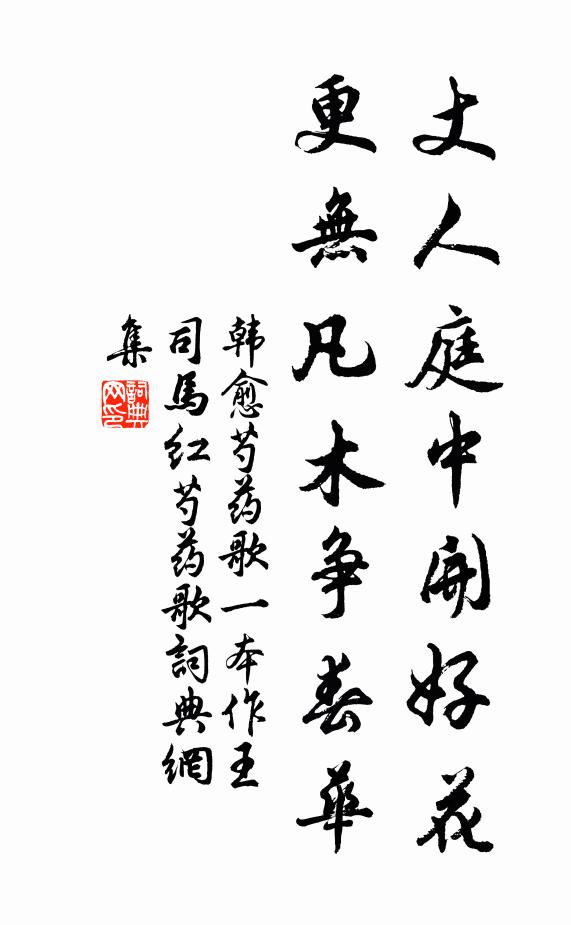 丈人庭中開好花
更無凡木争春華
韩愈芍药歌一本作王
司馬红芍药歌詞典網
集
詞典
网印